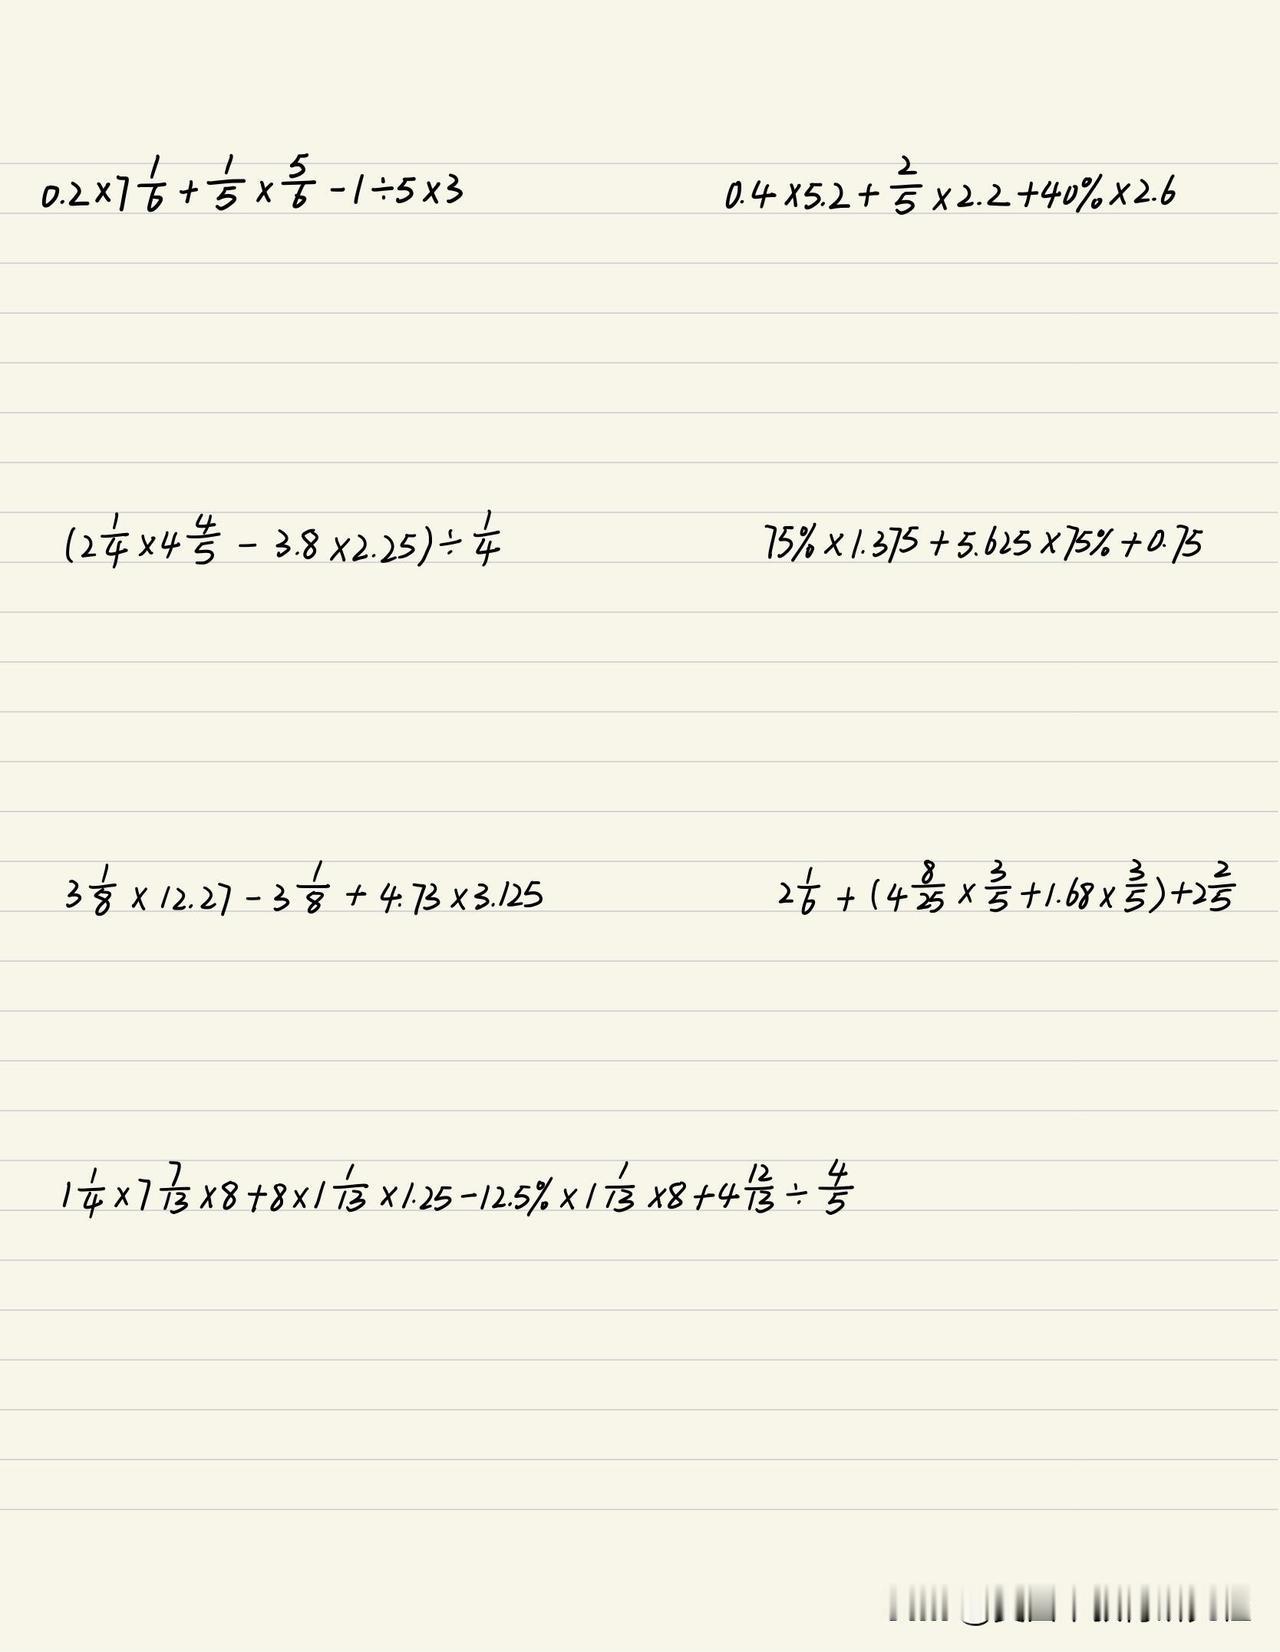 0.2×7 1/6 + 1/5 × 5/6 - 1÷5×3
0.4×5.2 + 2/5 ×2.2 + 40%×2.6
(2 1/4 ×4 4/5 - 3.8×2.25) ÷ 1/4
75%×1.375 + 5.625×75% + 0.75
3 1/8 ×12.27 - 3 1/8 + 4.73×3.125
2 1/6 + (4 8/25 × 3/5 + 1.68× 3/5) + 2 2/5
1 1/4 ×7 7/13 ×8 + 8×1 1/13 ×1.25 - 12.5%×1 1/13 ×8 + 4 12/13 ÷ 4/5